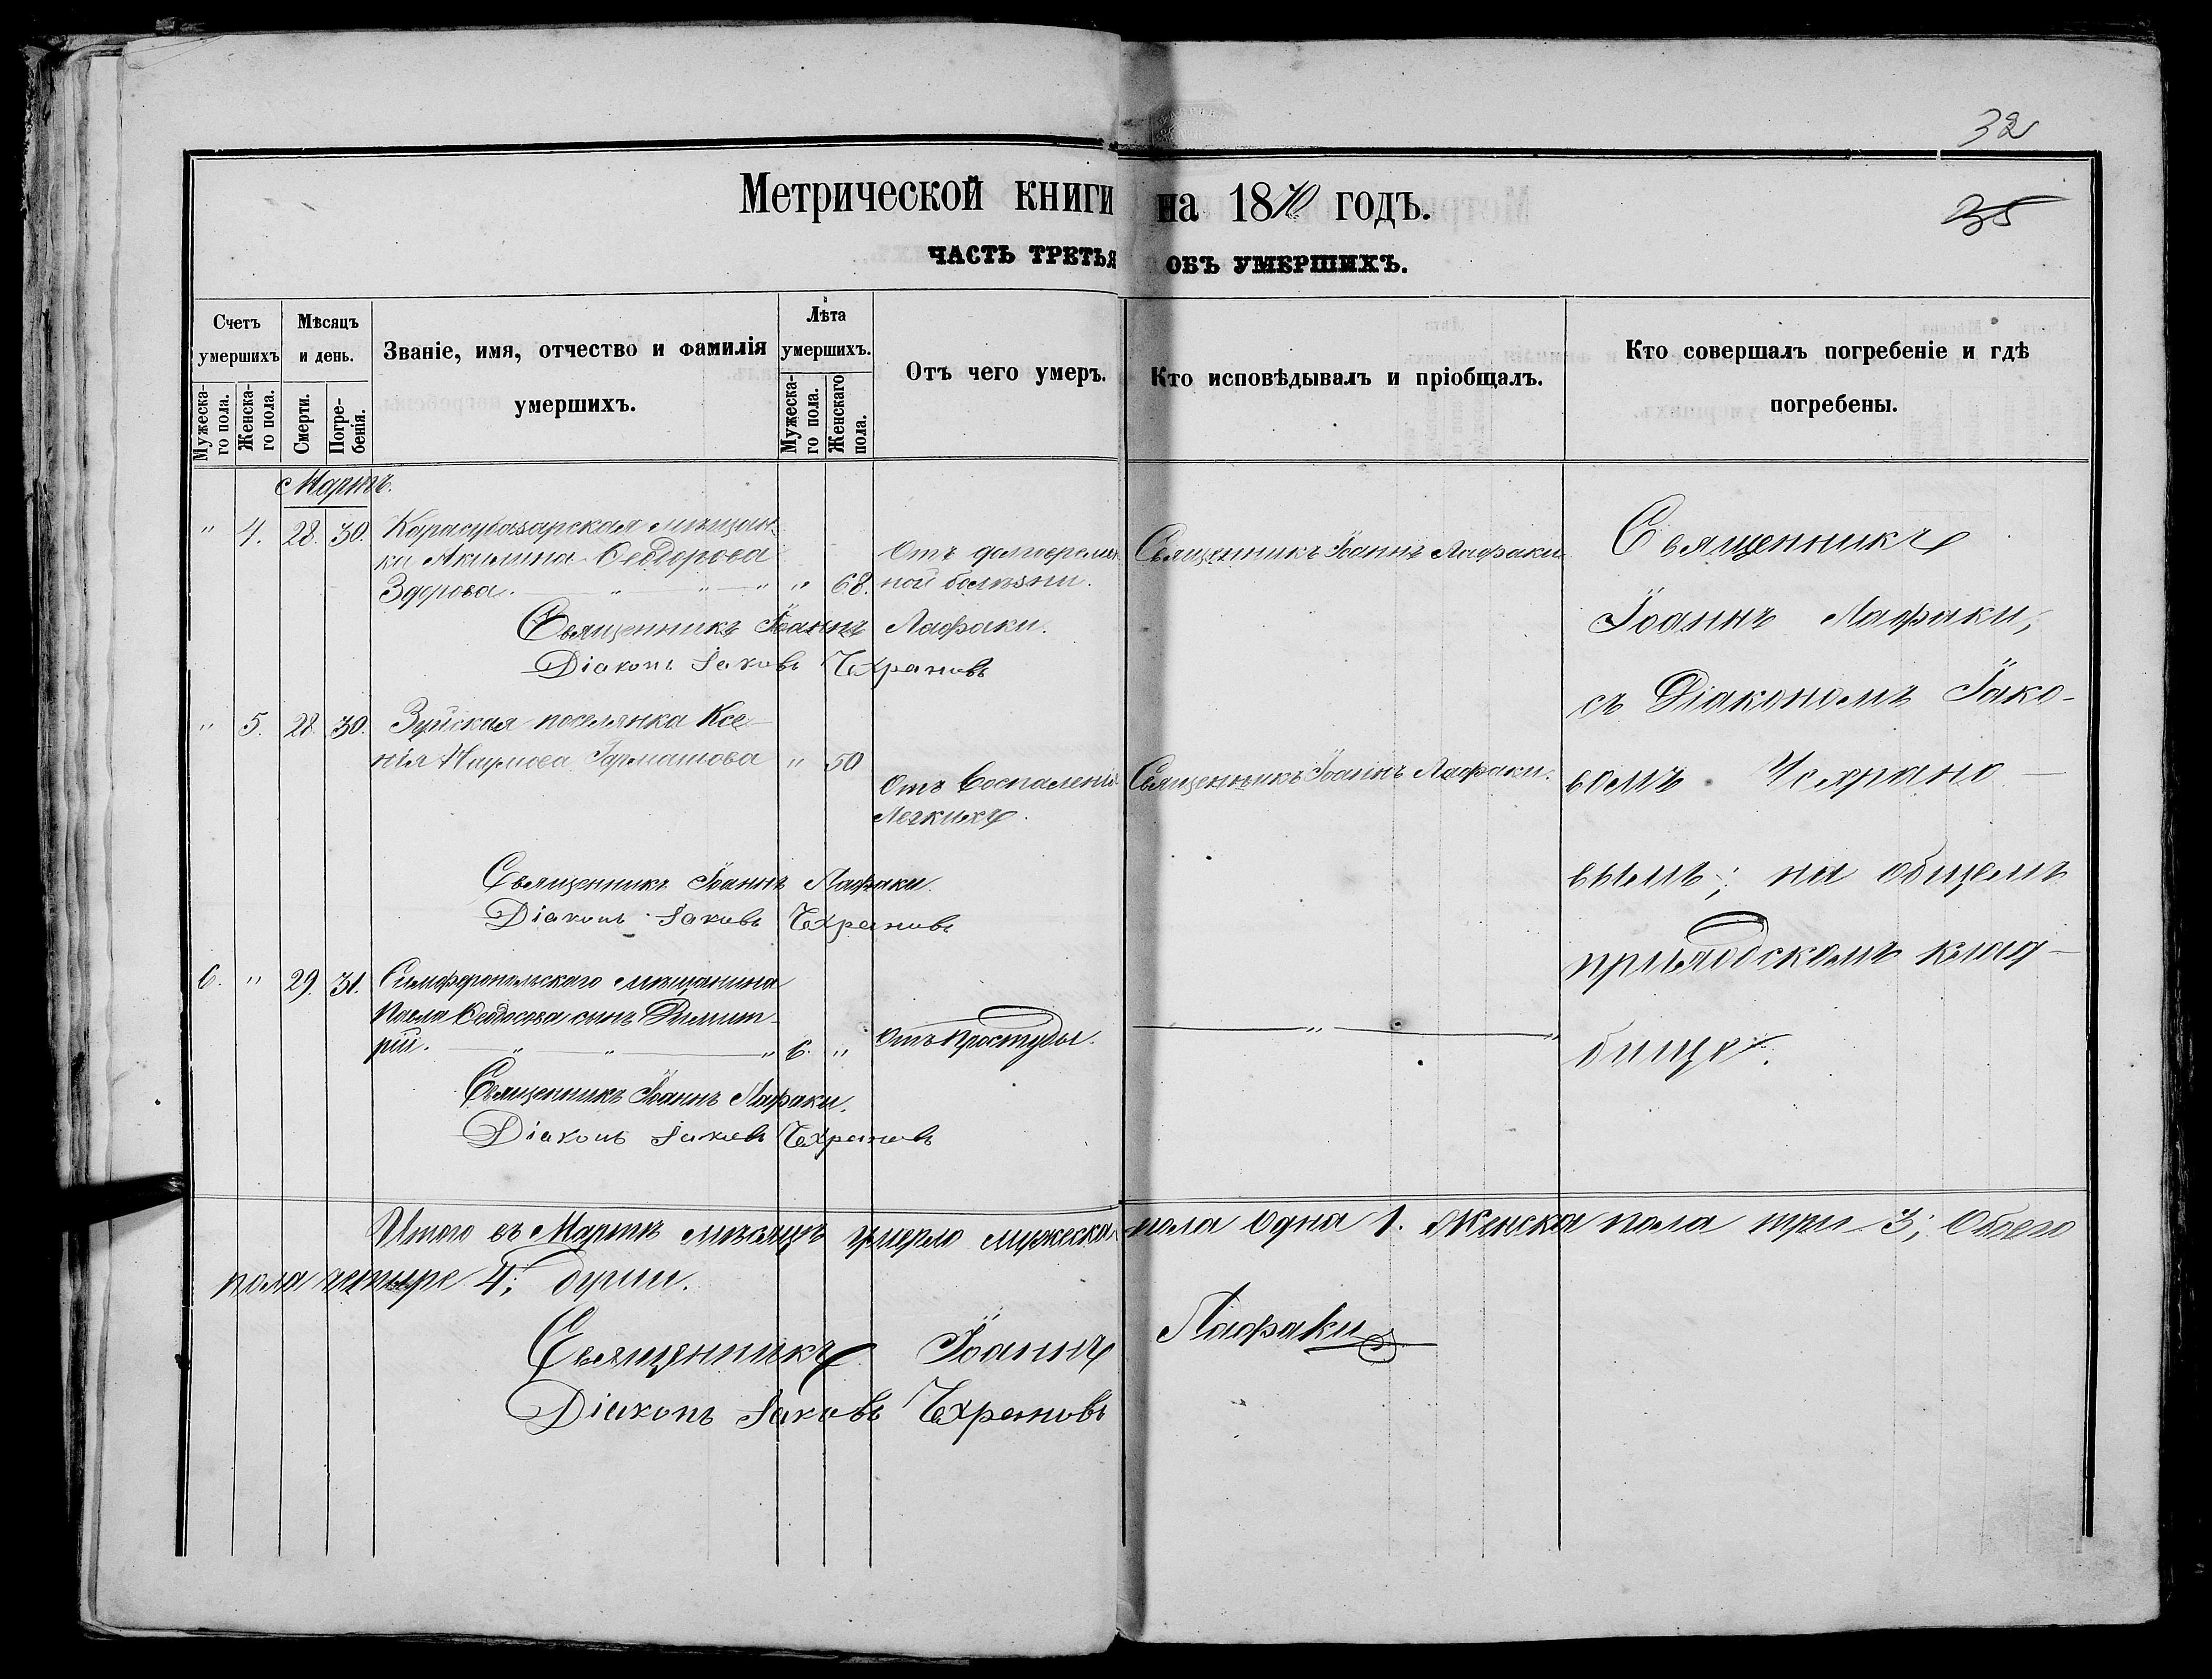 32
35
Метрической книги на 1870 годъ.
ЧАСТЬ ТРЕТЬЯ ОБЪ УМЕРШИХЪ.
Счетъ умершихъ
Мужеска-го пола.
Женска-го пола.
Мѣсяцъ и день.
Смерти.
Погре-бенія.
Званіе, имя, отчество и фамилія
умершихъ.
Лѣта умершихъ.
Мужеска-го пола.
Женскаго пола.
Отъ чего умеръ.
Кто исповѣдывалъ и пріобщалъ.
Кто совершалъ погребеніе и гдѣ
погребены.
Мартъ.
" 4. 28. 30. Карасубазарская мѣщан-
ка Акилина Ѳеодорова
Здорова. " " " " 68.
Отъ долговремен
ной болѣзни.
Священникъ Іоаннъ Лафаки
Священникъ Іоаннъ Лафаки.
Діаконъ Іаковъ Чехрановъ
" 5. 28. 30. Зуйская поселянка Ксе-
нія Наумова Гармашова " 50
Отъ Воспаленія
Легкихъ.
Священникъ Іоаннъ Лафаки.
Священникъ Іоаннъ Лафаки.
Діаконъ Іаковъ Чехрановъ
6. " 29. 31. Симферопольскаго мѣщанина
Павла Ѳеодосова сынъ Димит-
рій. " " " 6. "
Отъ простуды.
"
Священникъ Іоаннъ Лафаки.
Діаконъ Іаковъ Чехрановъ
Священникъ
Іоаннъ Лафаки,
съ Діакономъ Іако-
вомъ Чехрано-
вымъ; на общемъ
приходскомъ клад-
бищѣ.
Итого въ Мартѣ мѣсяцѣ умерло мужеска пола одна 1. Женска пола три 3; Обоего
пола четыре 4; души.
Священникъ Іоаннъ Лафаки
Діаконъ Іаковъ Чехрановъ